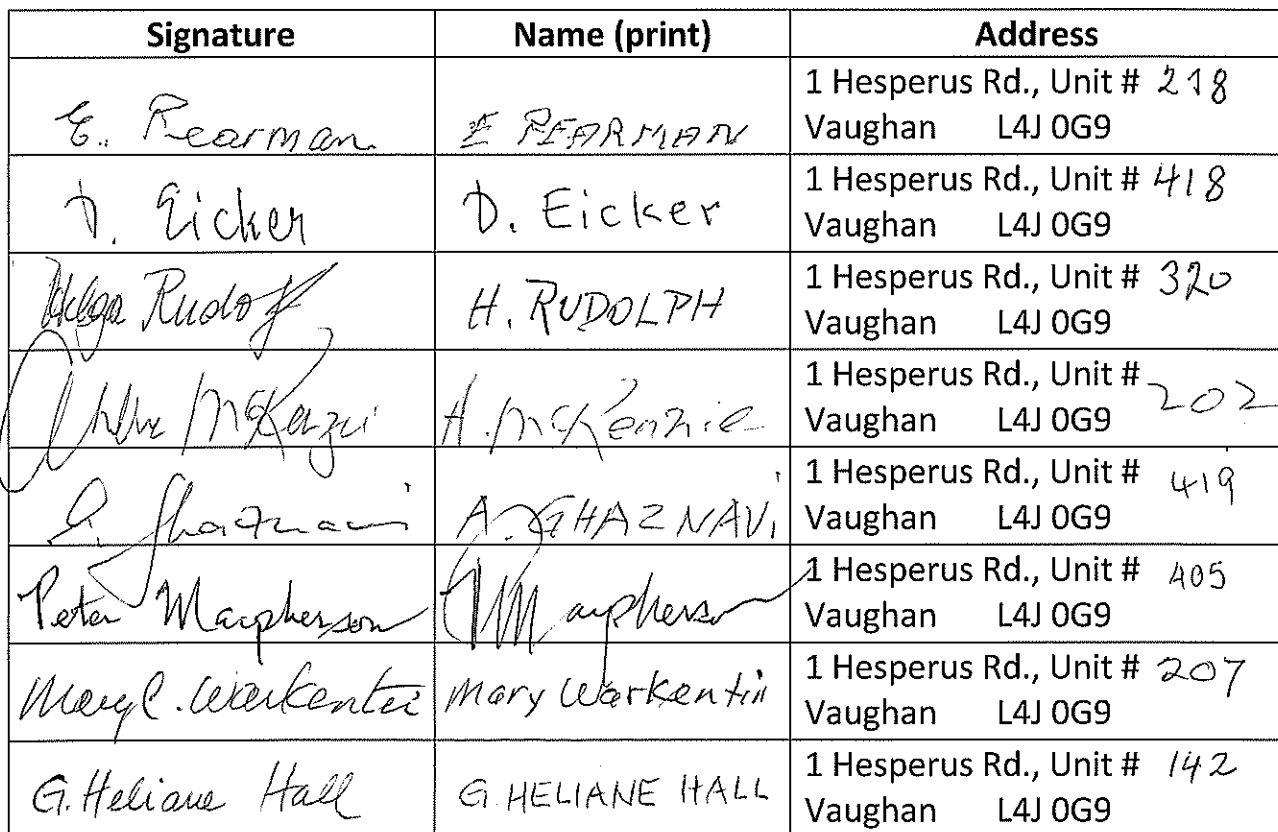 Signature Name (print) Address
E. Pearman E PEARMAN 1 Hesperus Rd., Unit # 218
Vaughan L4J 0G9
D. Eicker D. Eicker 1 Hesperus Rd., Unit # 418
Vaughan L4J 0G9
Helga Rudolf H. RUDOLPH 1 Hesperus Rd., Unit # 320
Vaughan L4J 0G9
McKenzie H. McKenzie 1 Hesperus Rd., Unit # 202
Vaughan L4J 0G9
Ghaznavi A. GHAZNAVI 1 Hesperus Rd., Unit # 419
Vaughan L4J 0G9
Peter Macpherson P Macpherson 1 Hesperus Rd., Unit # 405
Vaughan L4J 0G9
Mary C. Warkentin Mary Warkentin 1 Hesperus Rd., Unit # 207
Vaughan L4J 0G9
G. Heliane Hall G. HELIANE HALL 1 Hesperus Rd., Unit # 142
Vaughan L4J 0G9